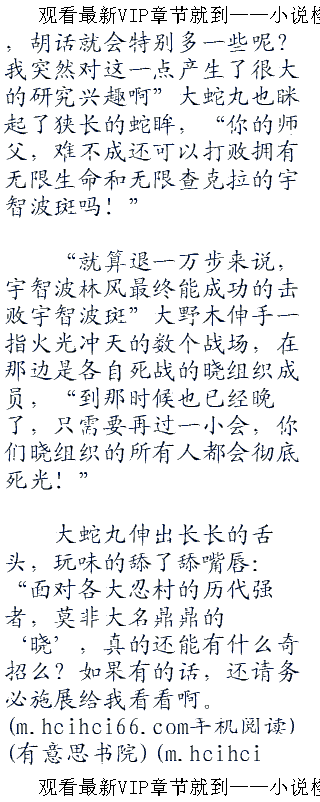 观看最新VIP章节就到——小说检
，胡话就会特别多一些呢？
我突然对这一点产生了很大
的研究兴趣啊”大蛇丸也眯
起了狭长的蛇眸，“你的师
父，难不成还可以打败拥有
无限生命和无限查克拉的宇
智波斑吗！”
“就算退一万步来说，
宇智波林风最终能成功的击
败宇智波斑”大野木伸手一
指火光冲天的数个战场，在
那边是各自死战的晓组织成
员，“到那时候也已经晚
了，只需要再过一小会，你
们晓组织的所有人都会彻底
死光！”
大蛇丸伸出长长的舌
头，玩味的舔了舔嘴唇：
“面对各大忍村的历代强
者，莫非大名鼎鼎的
‘晓’，真的还能有什么奇
招么？如果有的话，还请务
必施展给我看看啊。
(m.hcihci66.com手机阅读)
(有意思书院)(m.hcihci
观看最新VIP章节就到——小说检